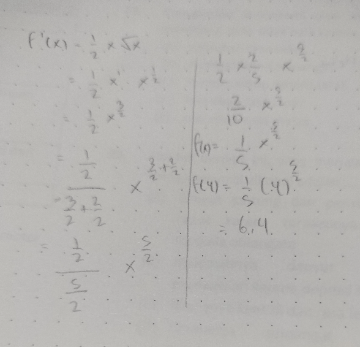 f'(x) = 1/2 x √x
= 1/2 x¹ x^(1/2)
= 1/2 x^(3/2)
= (1/2)/(3/2 + 2/2) x^(3/2 + 2/2)
= (1/2)/(5/2) x^(5/2)
1/2 × 2/5 x^(5/2)
2/10 x^(5/2)
f(x) = 1/5 x^(5/2)
f(4) = 1/5 (4)^(5/2)
= 6,4